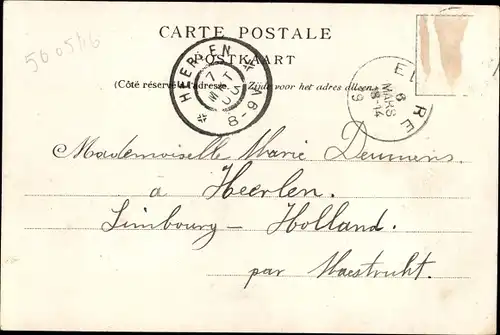 CARTE POSTALE
POSTKAART
(Côté réservé à l'adresse) Zijde voor het adres alleen
560516
HEERLEN
7 MRT 05
8-9V
6 MARS
8-14
Mademoiselle Marie Deumens
à Heerlen.
Limbourg – Holland.
par Maestricht.